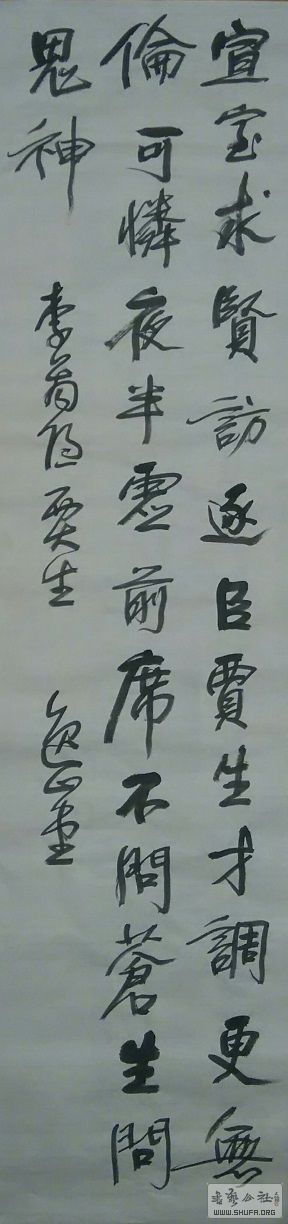 宣室求賢訪逐臣賈生才調更無
倫可憐夜半虛前席不問蒼生問
鬼神
李商隱賈生
WWW.SHUFA.ORG